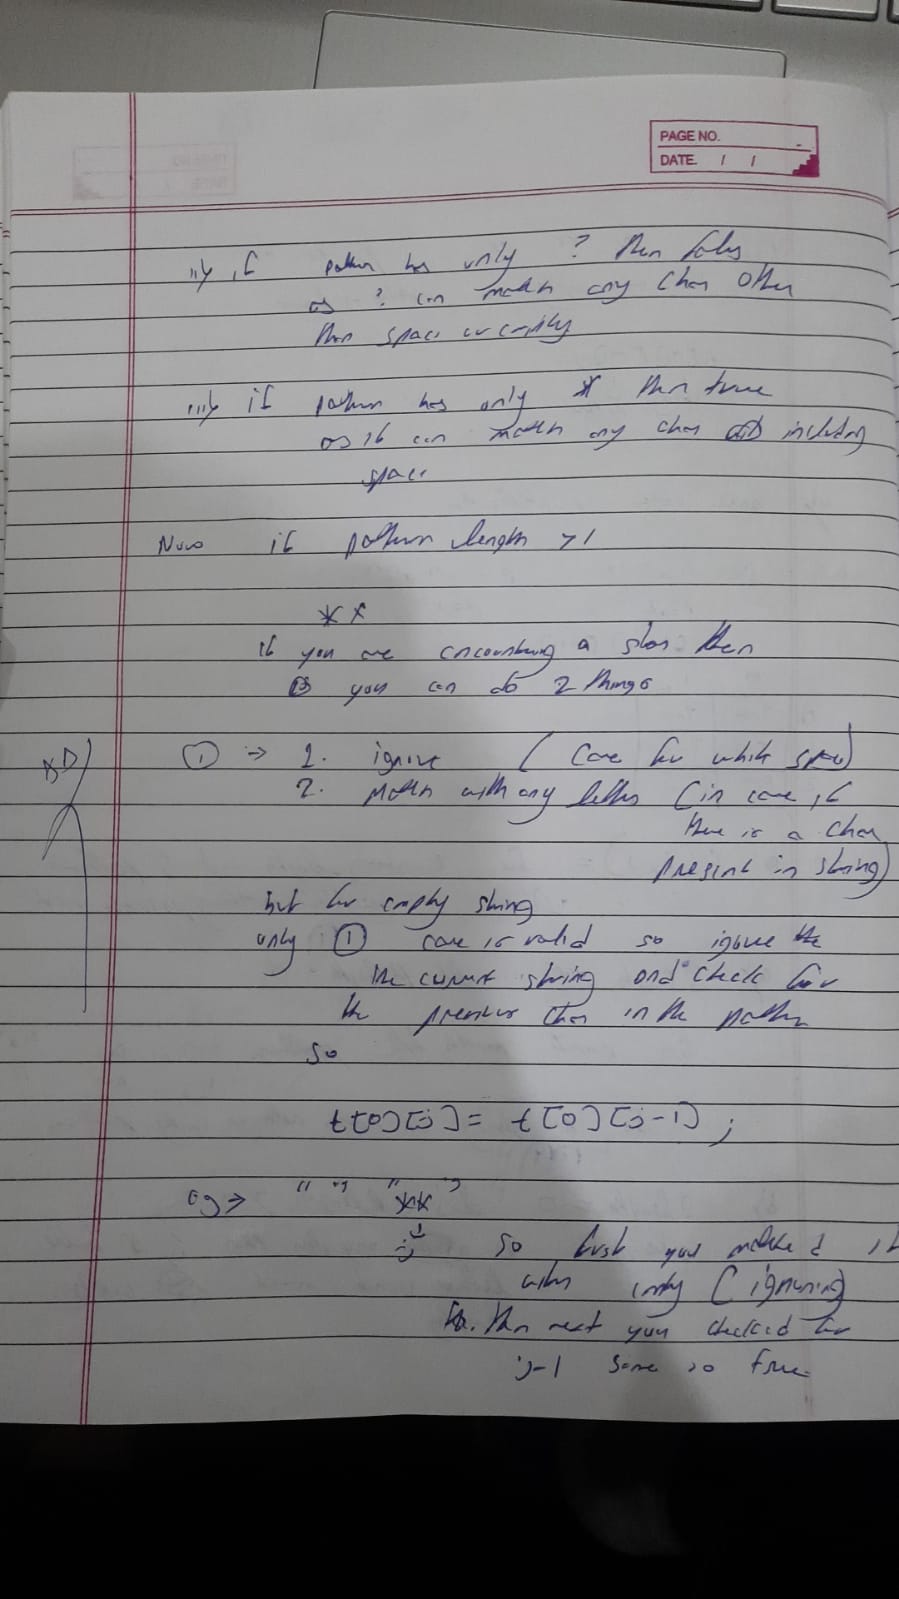 PAGE NO.
DATE. / /
ii) if pattern has only ? then false
as ? can match any char other
than space or empty
iii) if pattern has only * then true
as it can match any char including
space
Now if pattern length > 1
**
if you are encountring a star then
you can do 2 things
① => 1. ignore ( case for white space)
2. Match with any letter ( in case if
there is a char
present in string)
but for empty string
only ① case is valid so ignore the
the current string and check for
the previous char in the pattern
so
t[0][j] = t[0][j-1];
eg => " " "**"
j so first you match it
with empty ( ignoring)
then next you checked for
j-1 same so true